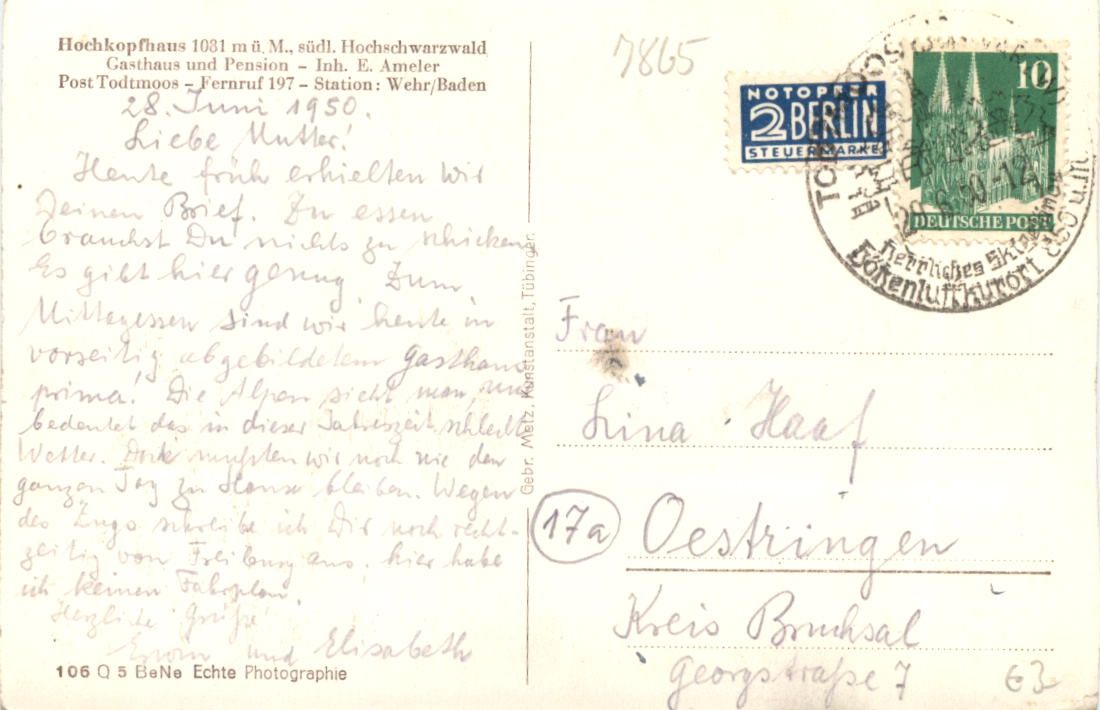 Hochkopfhaus 1081 m ü. M., südl. Hochschwarzwald
Gasthaus und Pension – Inh. E. Ameler
Post Todtmoos – Fernruf 197 – Station: Wehr/Baden
28. Juni 1950.
Liebe Mutter!
Heute früh erhielten wir
Deinen Brief. Zu essen
brauchst Du nichts zu schicken
Es gibt hier genug. Zum
Mittagessen sind wir heute in
vorseitig abgebildetem Gasthaus
prima! Die Alpen sieht man, und
bedeutet das in dieser Jahreszeit schlecht
Wetter. Doch mußten wir noch nie den
ganzen Tag zu Hause bleiben. Wegen
des Zugs schreibe ich Dir noch recht-
zeitig von Freiburg aus, hier habe
ich keinen Fahrplan.
Herzliche Grüße!
Erwin und Elisabeth
106 Q 5 BeNe Echte Photographie
Gebr. Metz, Kunstanstalt, Tübingen
7865
NOTOPFER
2 BERLIN
STEUERMARKE
10
DEUTSCHE POST
6.50-12
Herrliches
Höhenluftkurort
Frau
Lina Haaf
17a
Oestringen
Kreis Bruchsal
Georgstraße 7
€3